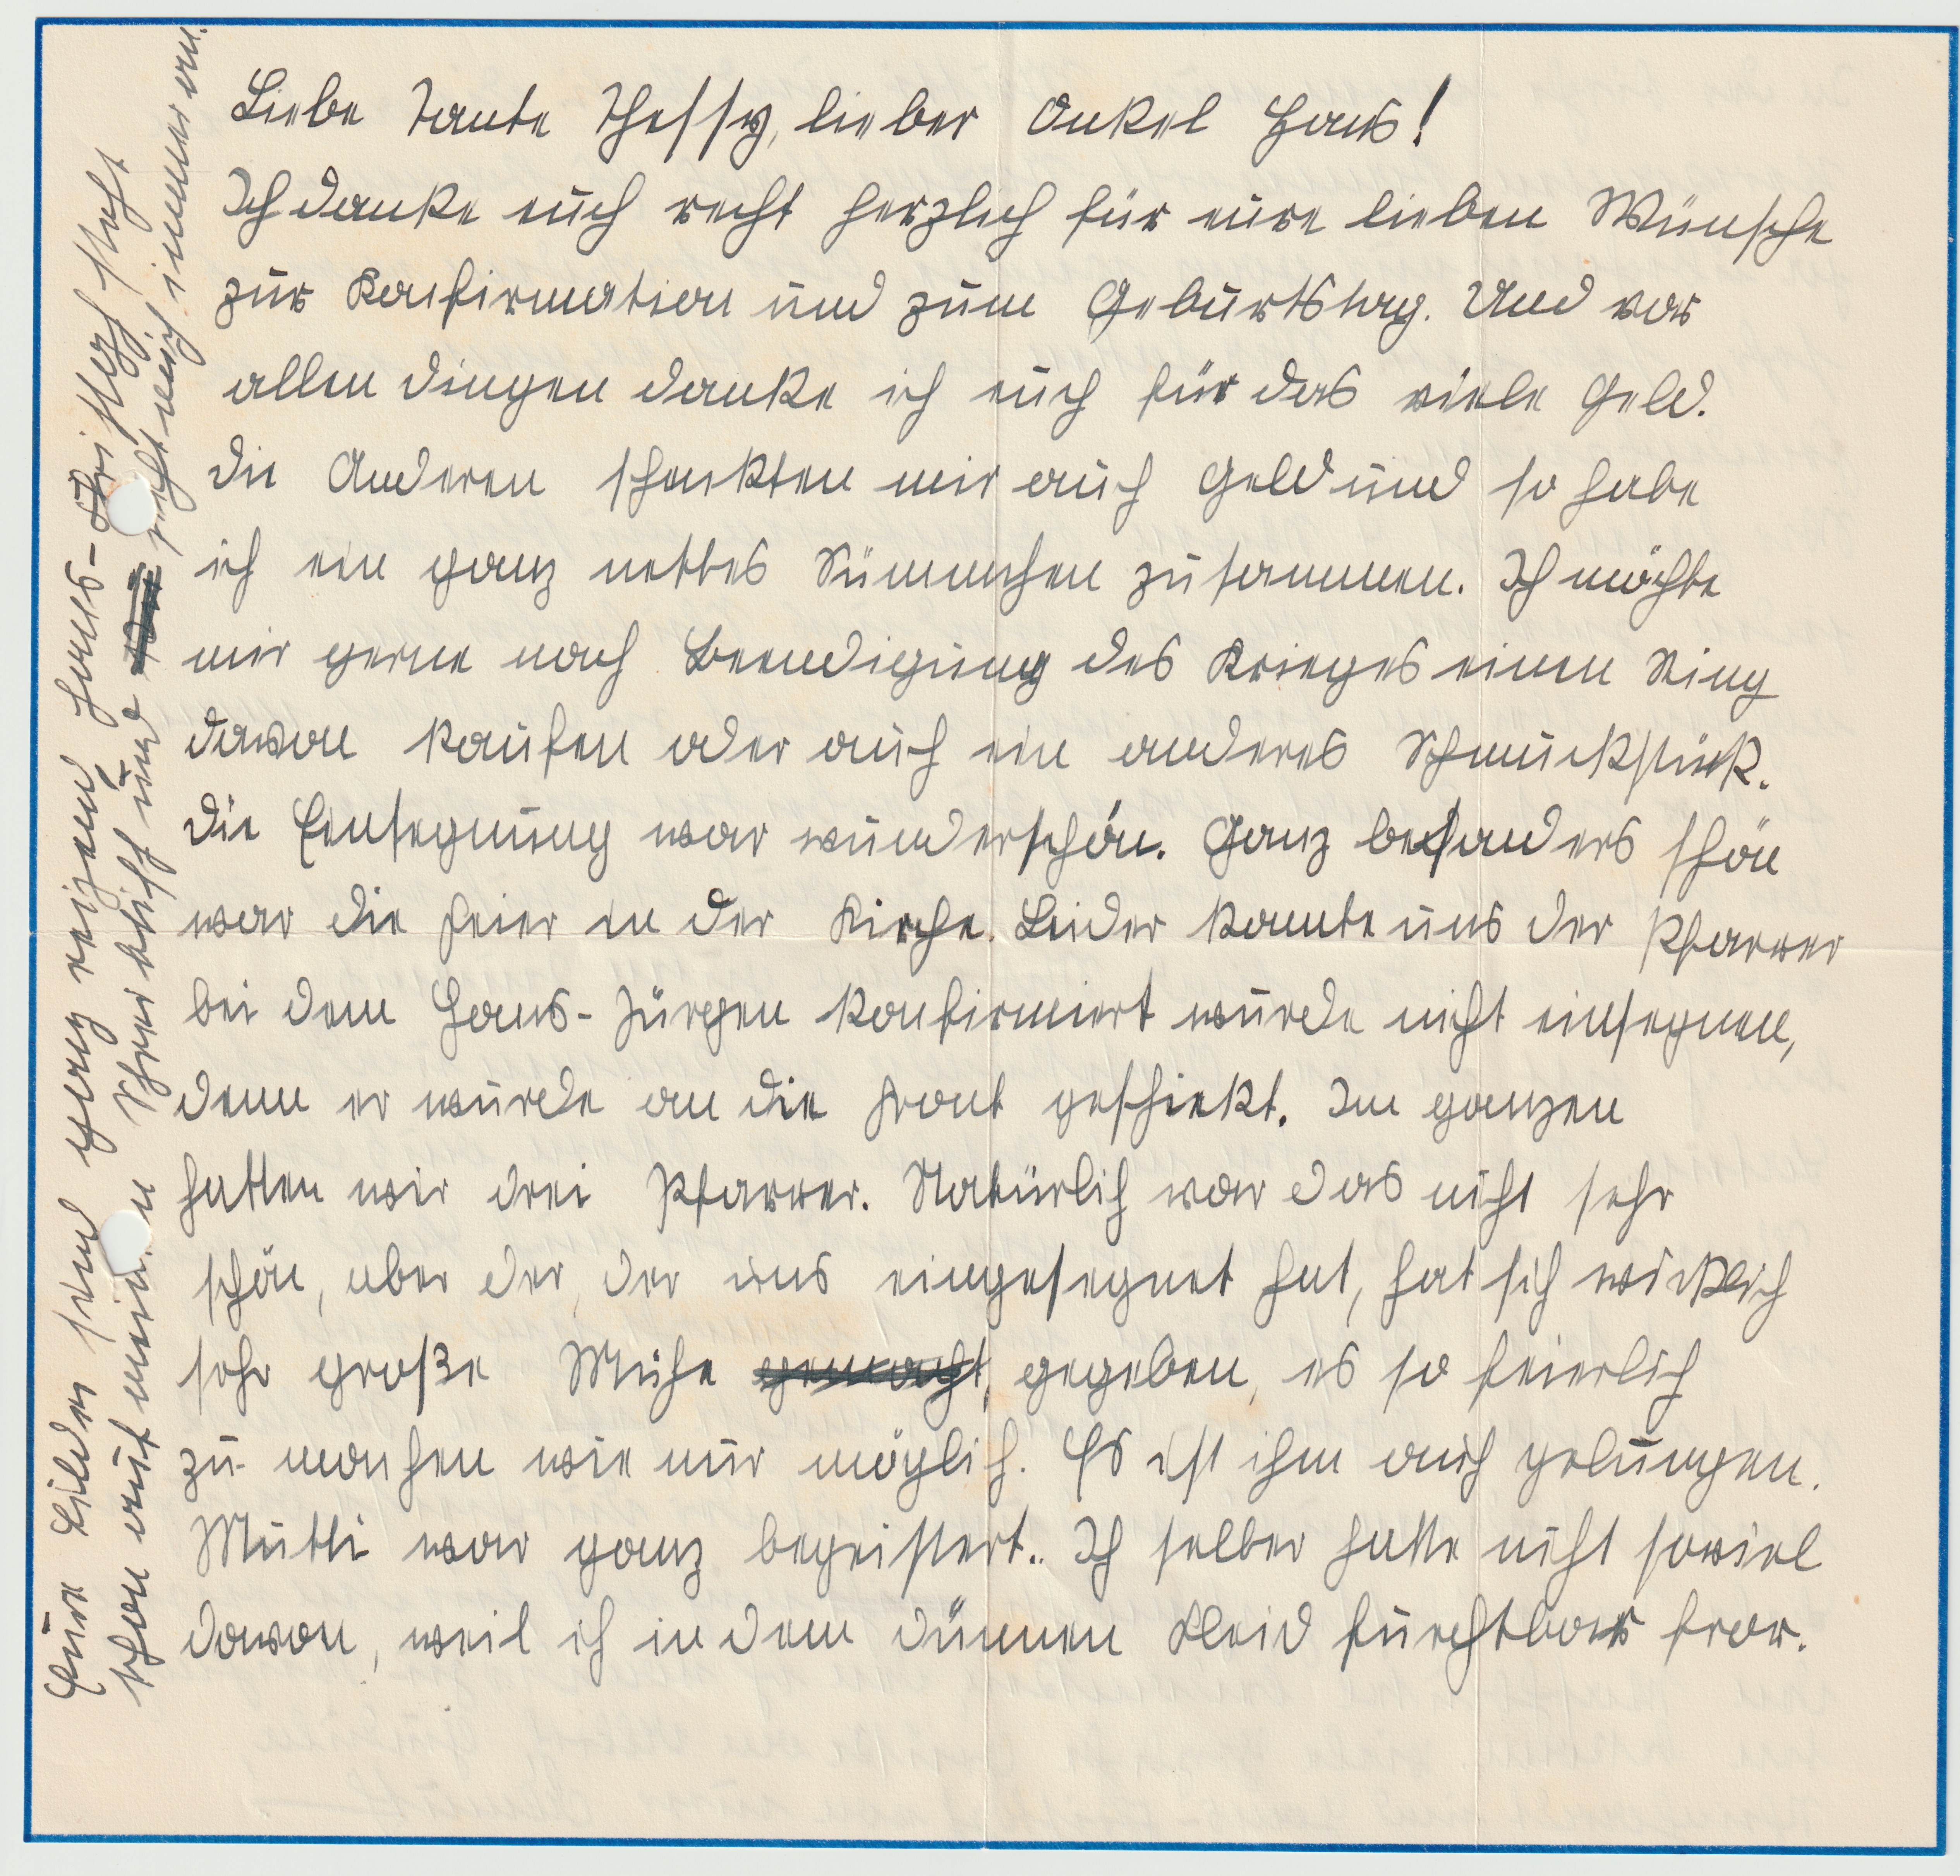 Liebe Tante Thessy, lieber Onkel Hans!
Ich danke euch recht herzlich für eure lieben Wünsche
zur Konfirmation und zum Geburtstag. Und vor
allen dingen danke ich euch für das viele Geld.
Die Anderen schenkten mir auch Geld und so habe
ich ein ganz nettes Sümmchen zusammen. Ich möchte
mir gerne nach Beendigung des Krieges einen Ring
davon kaufen oder auch ein anderes Schmuckstück.
Die Einsegnung war wunderschön. Ganz besonders schön
war die Feier in der Kirche. Leider konnte uns der Pfarrer
bei dem Hans-Jürgen konfirmiert wurde nicht einsegnen,
denn er wurde an die Front geschickt. Im ganzen
hatten wir drei Pfarrer. Natürlich war das nicht sehr
schön, aber der, der uns eingesegnet hat, hat sich wirklich
sehr große Mühe gemacht, gegeben, es so feierlich
zu machen wie nur möglich. Es ist ihm auch gelungen.
Mutti war ganz begeistert. Ich selber hatte nicht soviel
davon, weil ich in dem dünnen Kleid furchtbar fror.
Eure Bilder sind ganz reizend Hans-Christoph steht
schon auf meinem Schreibtisch und sieht mich immer an.